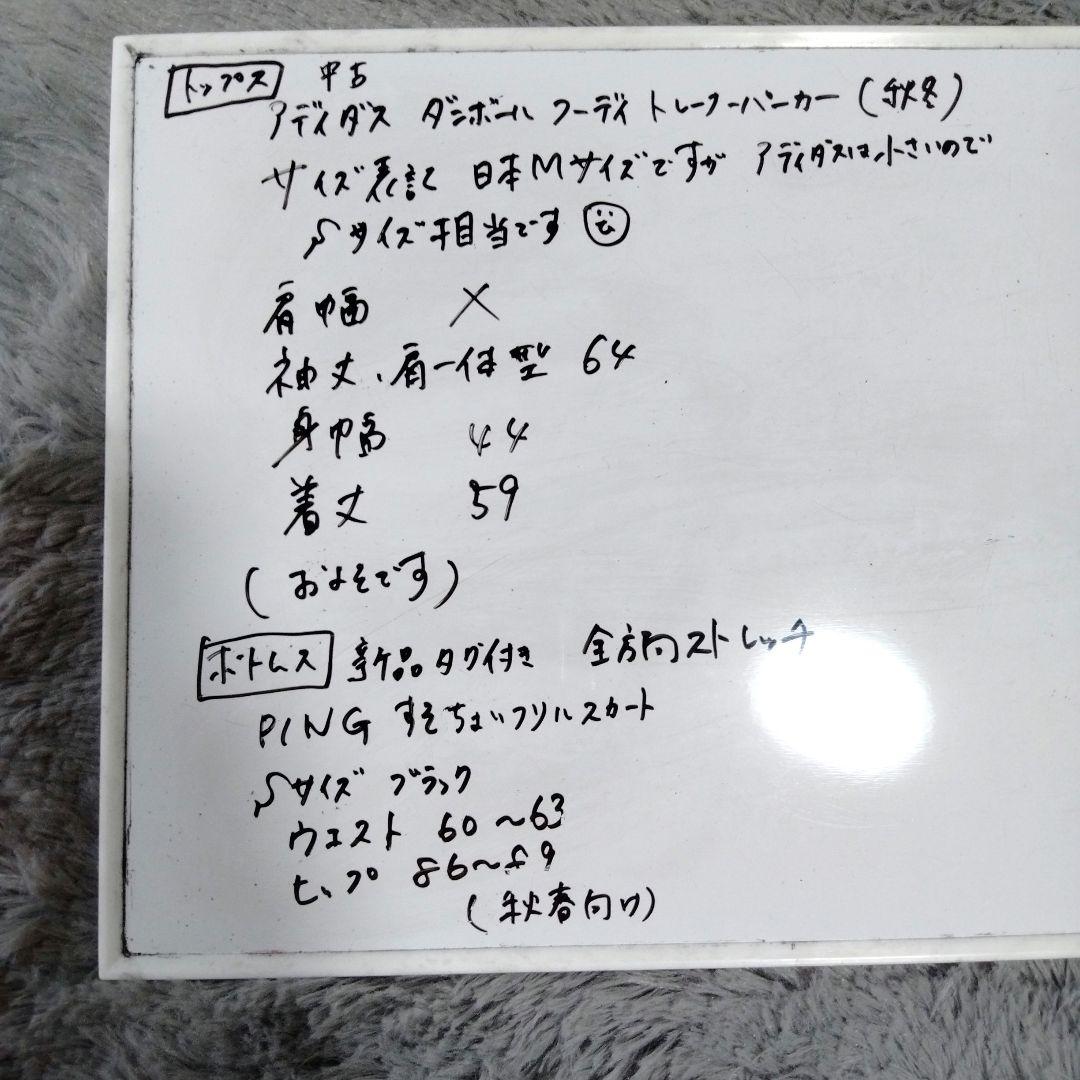 トップス 中古
アディダス ダンボール フーディ トレーナーパーカー (秋冬)
サイズ表記 日本Mサイズですが アディダスは小さいので
Sサイズ相当です
肩幅 ×
袖丈、肩一体型 64
身幅 44
着丈 59
(およそです)
ボトムス 新品タグ付き 全方向ストレッチ
PING すそちょいフリルスカート
Sサイズ ブラック
ウエスト 60〜63
ヒップ 86〜89
(秋春向け)